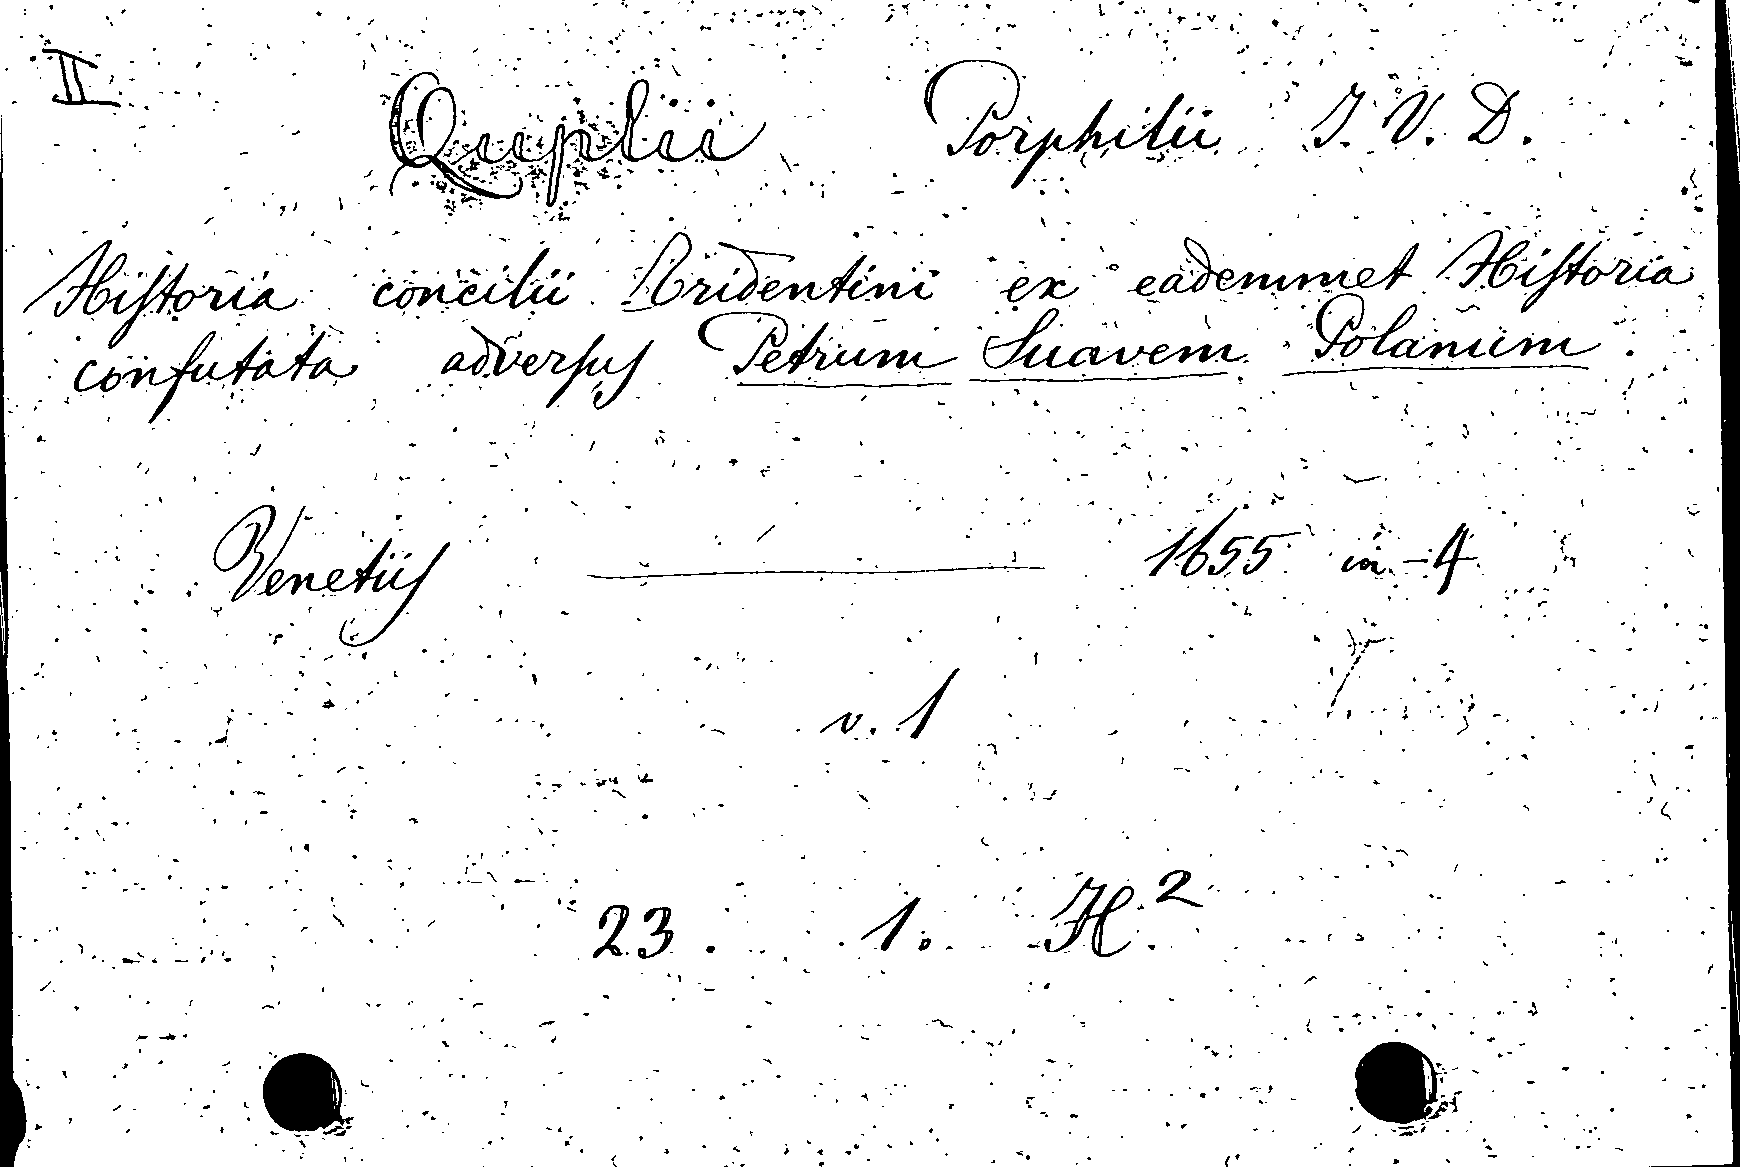 II
Quplii Porphilii J. V. D.
Historia concilii Tridentini ex eademmet Historia
confutata adversus Petrum Suavem Polanum.
Venetiis 1655 in-4
v. 1
23. 1. H.²